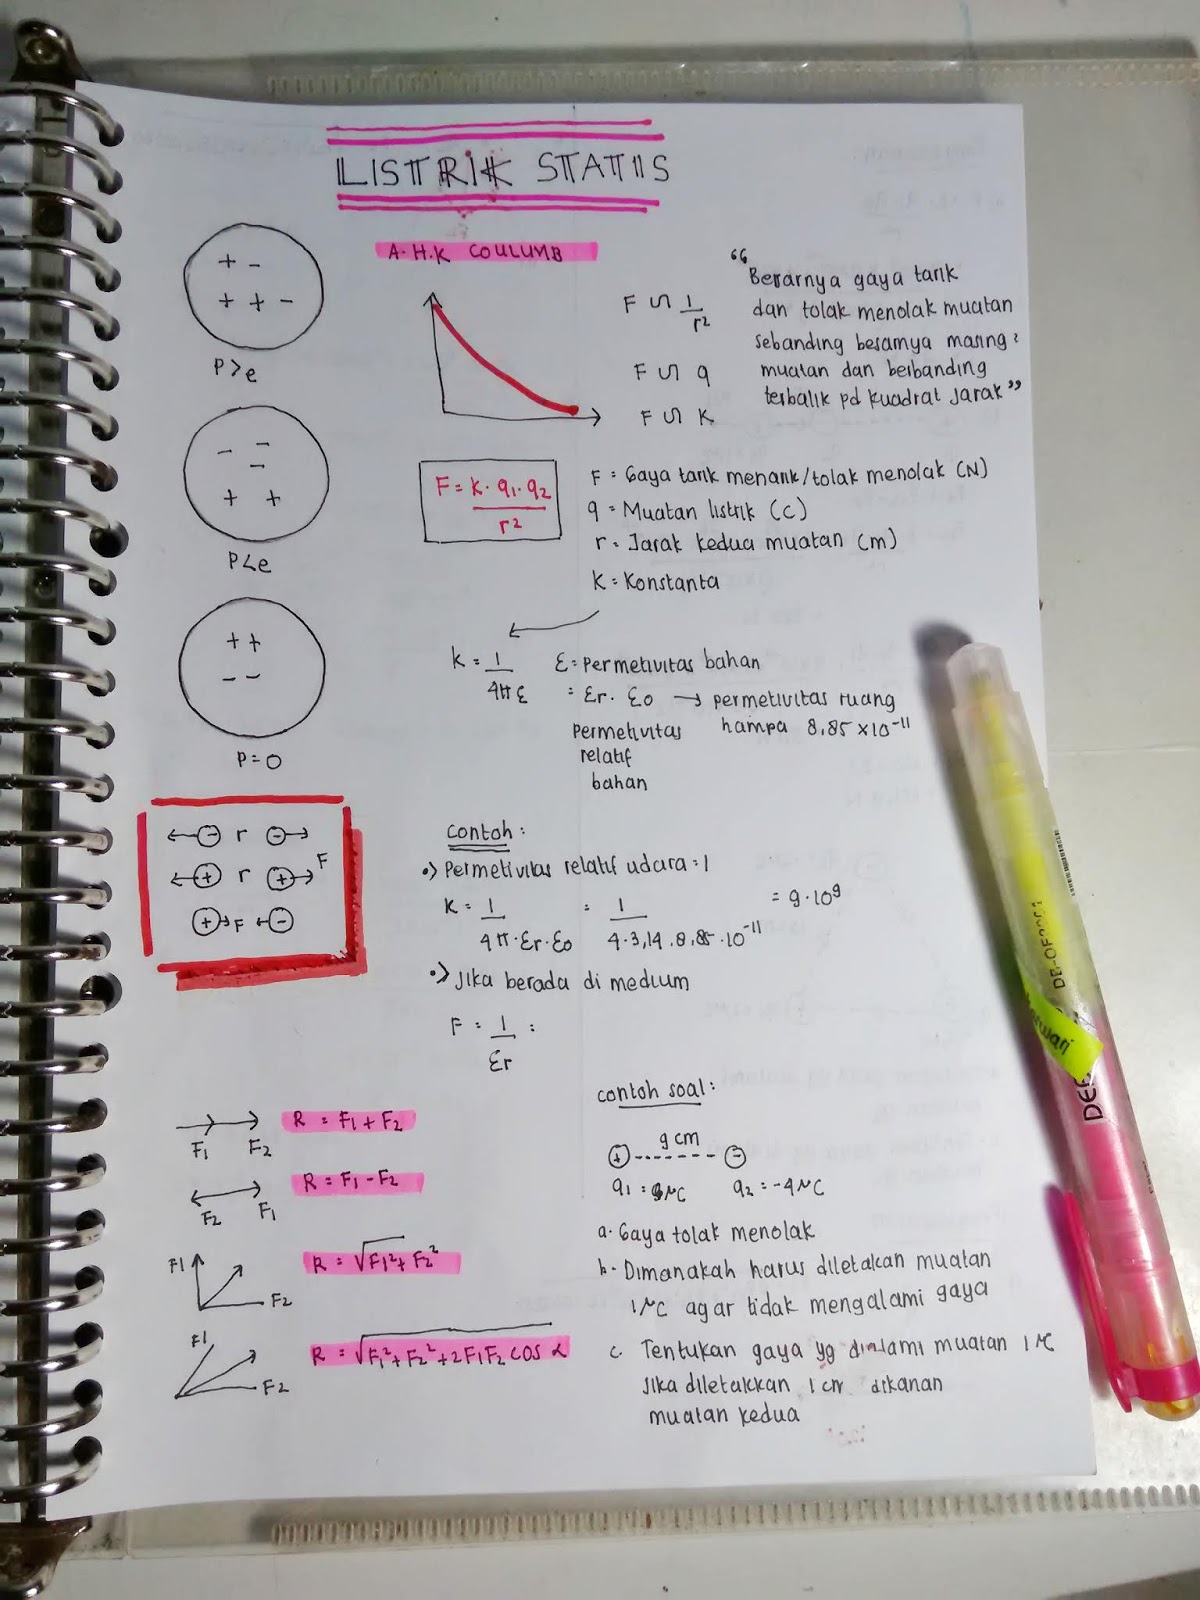 LISTRIK STATIS
A. H.K COULUMB
+ -
+ + -
P>e
- -
-
+ +
P<e
+ +
- -
P=0
F ∽ 1/r²
F ∽ q
F ∽ K
"Besarnya gaya tarik
dan tolak menolak muatan
sebanding besarnya masing²
muatan dan berbanding
terbalik pd kuadrat jarak"
F = K. q1. q2 / r²
F = Gaya tarik menarik/tolak menolak (N)
q = Muatan listrik (C)
r = Jarak kedua muatan (m)
K = Konstanta
K = 1/4π ε
ε = Permetivitas bahan
= εr. εo → permetivitas ruang
hampa 8,85 x 10⁻¹¹
permetivitas
relatif
bahan
- r -
+ r + F
+ F -
Contoh :
•) Permetivitas relatif udara = 1
K = 1/4π.εr.εo = 1/4.3,14.8,85.10⁻¹¹ = 9.10⁹
•) Jika berada di medium
F = 1/εr =
F1 F2 R = F1 + F2
F2 F1 R = F1 - F2
F1 F2 R = √F1² + F2²
F1 F2 R = √F1² + F2² + 2F1F2 cos α
contoh soal :
+ 9 cm -
q1 = μC q2 = -4μC
a. Gaya tolak menolak
b. Dimanakah harus diletakan muatan
1μC agar tidak mengalami gaya
c. Tentukan gaya yg dialami muatan 1μC
jika diletakkan 1 cm dikanan
muatan kedua
DE-
DEB